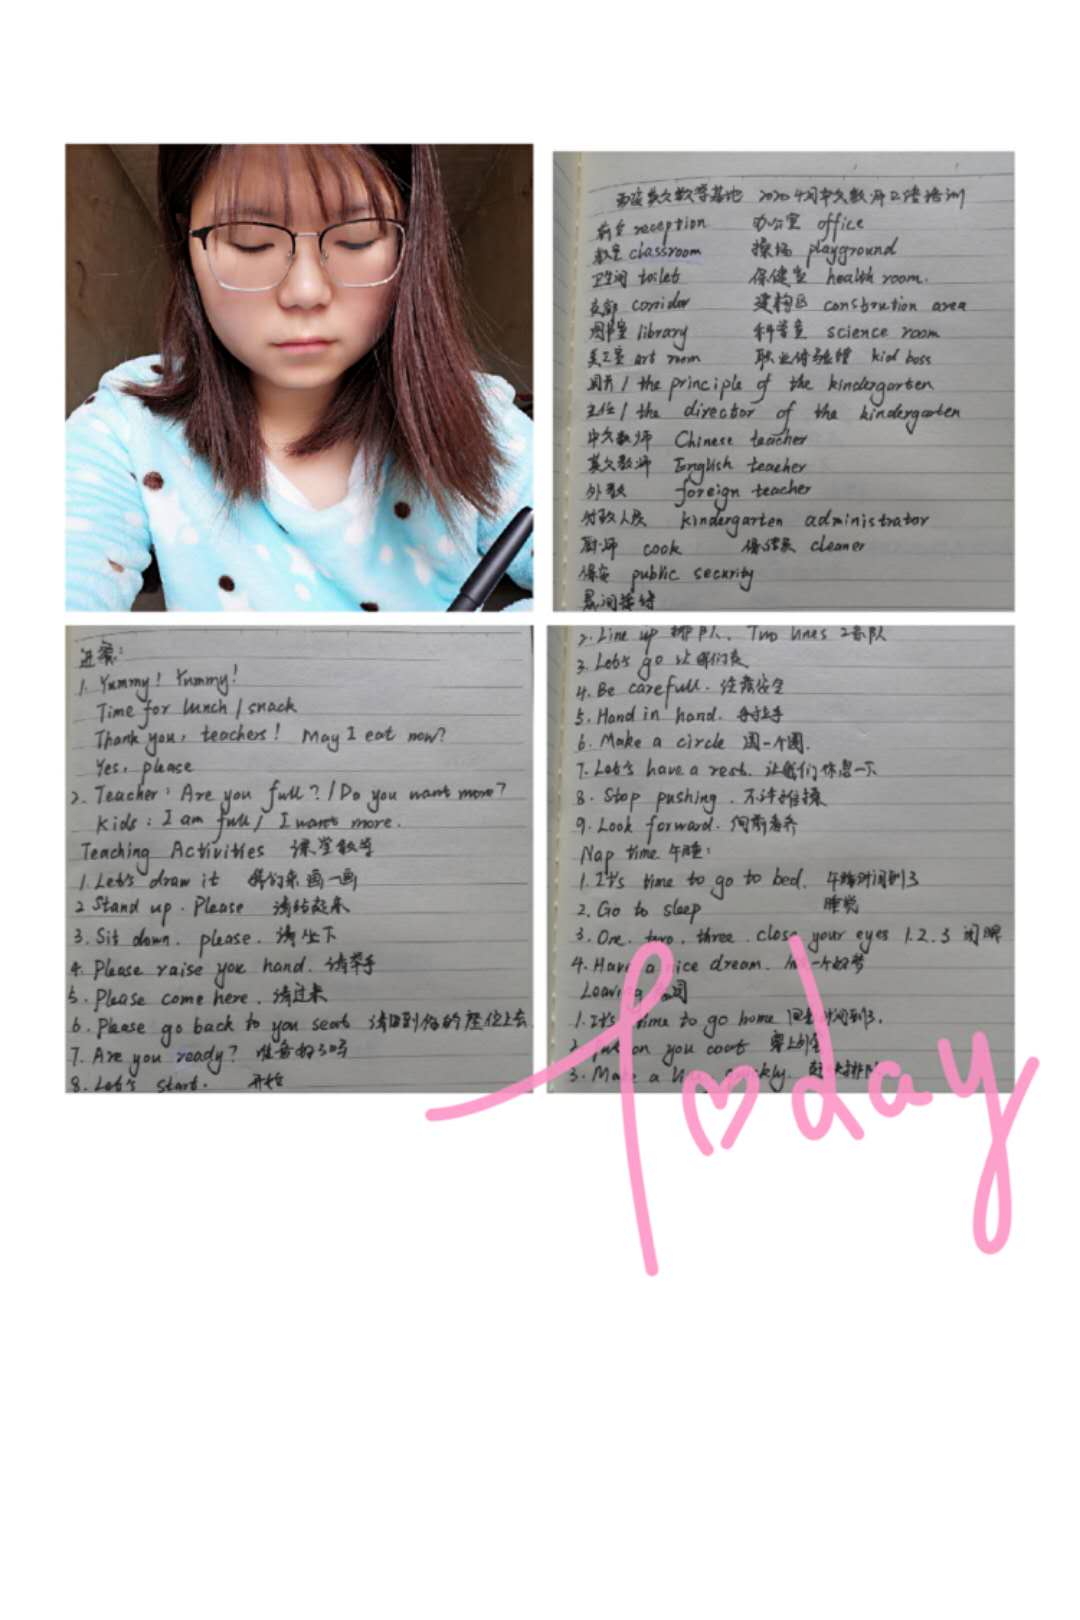 英文教学基地 2020年4月中文教师口语培训
前台 reception 办公室 office
教室 classroom 操场 playground
卫生间 toilet 保健室 health room.
走廊 corridor 建构区 constrution area
图书室 library 科学室 science room
美工室 art room 职业体验馆 kid boss
园长 / the principle of the kindergarten
主任 / the director of the kindergarten
中文教师 Chinese teacher
英文教师 English teacher
外教 foreign teacher
行政人员 kindergarten administrator
厨师 cook 保洁员 cleaner
保安 public security
晨间接待
进餐:
1. Yummy! Yummy!
Time for lunch / snack
Thank you, teachers! May I eat now?
Yes, please
2. Teacher: Are you full? / Do you want more?
Kids: I am full / I want more.
Teaching Activities 课堂教学
1. Let's draw it 我们来画一画
2 Stand up. Please 请站起来
3. Sit down. please. 请坐下
4. Please raise you hand. 请举手
5. Please come here. 请过来
6. Please go back to you seat 请回到你的座位上去
7. Are you ready? 准备好了吗
8. Let's start. 开始
2. Line up 排队. Two lines 2条队
3. Let's go 让我们走
4. Be carefull. 注意安全
5. Hand in hand. 手拉手
6. Make a circle 围一个圈.
7. Let's have a rest. 让我们休息一下
8. Stop pushing. 不许推操
9. Look forward. 向前看齐
Nap time 午睡:
1. It's time to go to bed. 午睡时间到了
2. Go to sleep 睡觉
3. One. two. three. close your eyes 1.2.3 闭眼
4. Have a nice dream. 做一个好梦
Leaving
1. It's time to go home 回家时间到了.
2. Put on you coat 穿上外套
3. Make a line quickly. 赶快排队
Today